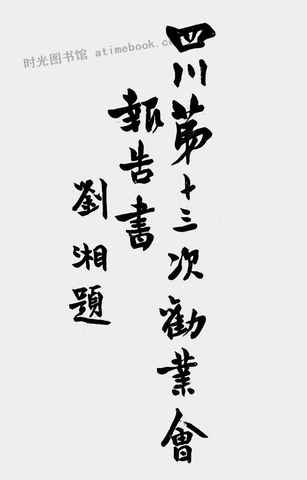 时光图书馆 atimebook.com
四川第十三次勸業會
報告書
劉湘題